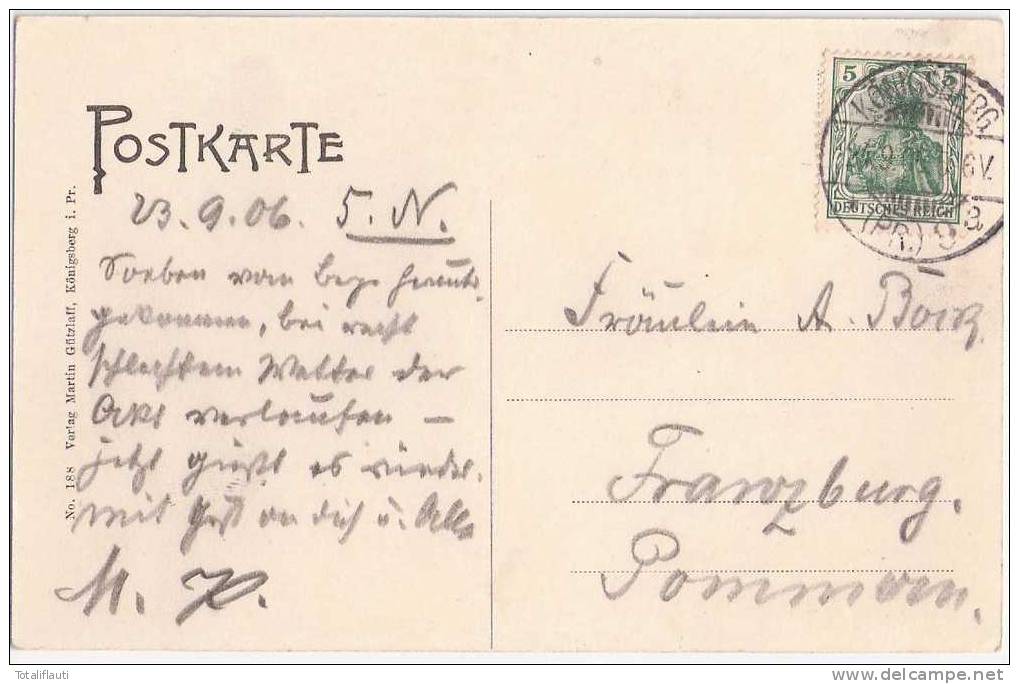 POSTKARTE
23.9.06. 5. N.
Soeben vom
gekommen, bei recht
schlechtem Wetter der
Akt verlaufen —
jetzt gießt es wieder.
mit Gruß an dich u. Alle
M. K.
No. 188 Verlag Martin Gützlaff, Königsberg i. Pr.
5 5
DEUTSCHES REICH
KÖNIGSBERG
(PR.) 9 a
Fräulein A. Bock
Franzburg.
Pommern.
Totaliflauti
delcampe.net